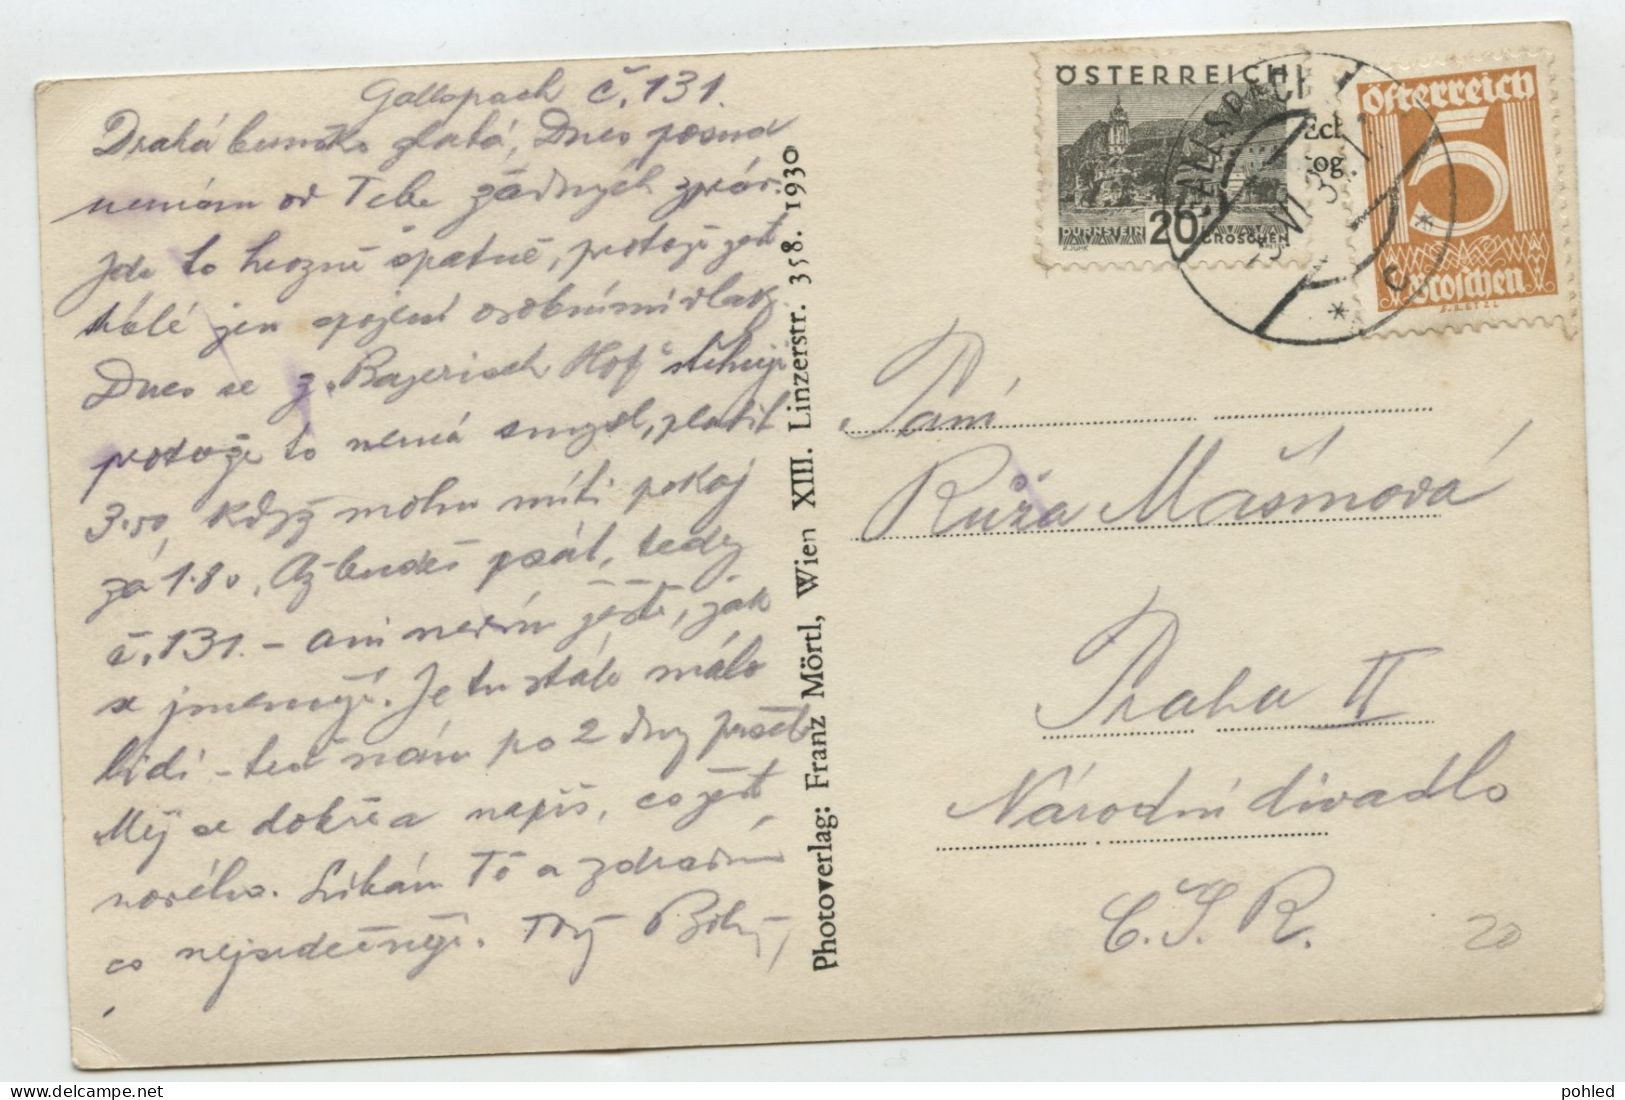 Gallspach č. 131.
Drahá zlatá, Dnes posud
nemám od Tebe žádných zpráv.
Jde to hrozně špatně, protože jest
stálé jen spojení osobními vlak.
Dnes se z „Bayerisch Hof" stěhuji
protože to nemá smysl, platit
3.50, když mohu míti pokoj
za 1.80. Až budeš psát, tedy
č. 131. – ani nevím ještě, jak
se jmenuje. Je tu stále málo
lidí – teď nám po 2 dny
Měj se dobře a napiš, co jest
nového. Líbám Tě a zdravím
co nejsrdečněji. Tvý
Photoverlag: Franz Mörtl, Wien XIII. Linzerstr. 358. 1930
ÖSTERREICH
DÜRNSTEIN
20 GROSCHEN
GALLSPACH
VI 31 11
* C *
Ech
og
Österreich
5
Groschen
Paní
Růža Mašínová
Praha II
Národní divadlo
Č.S.R.
20
pohled